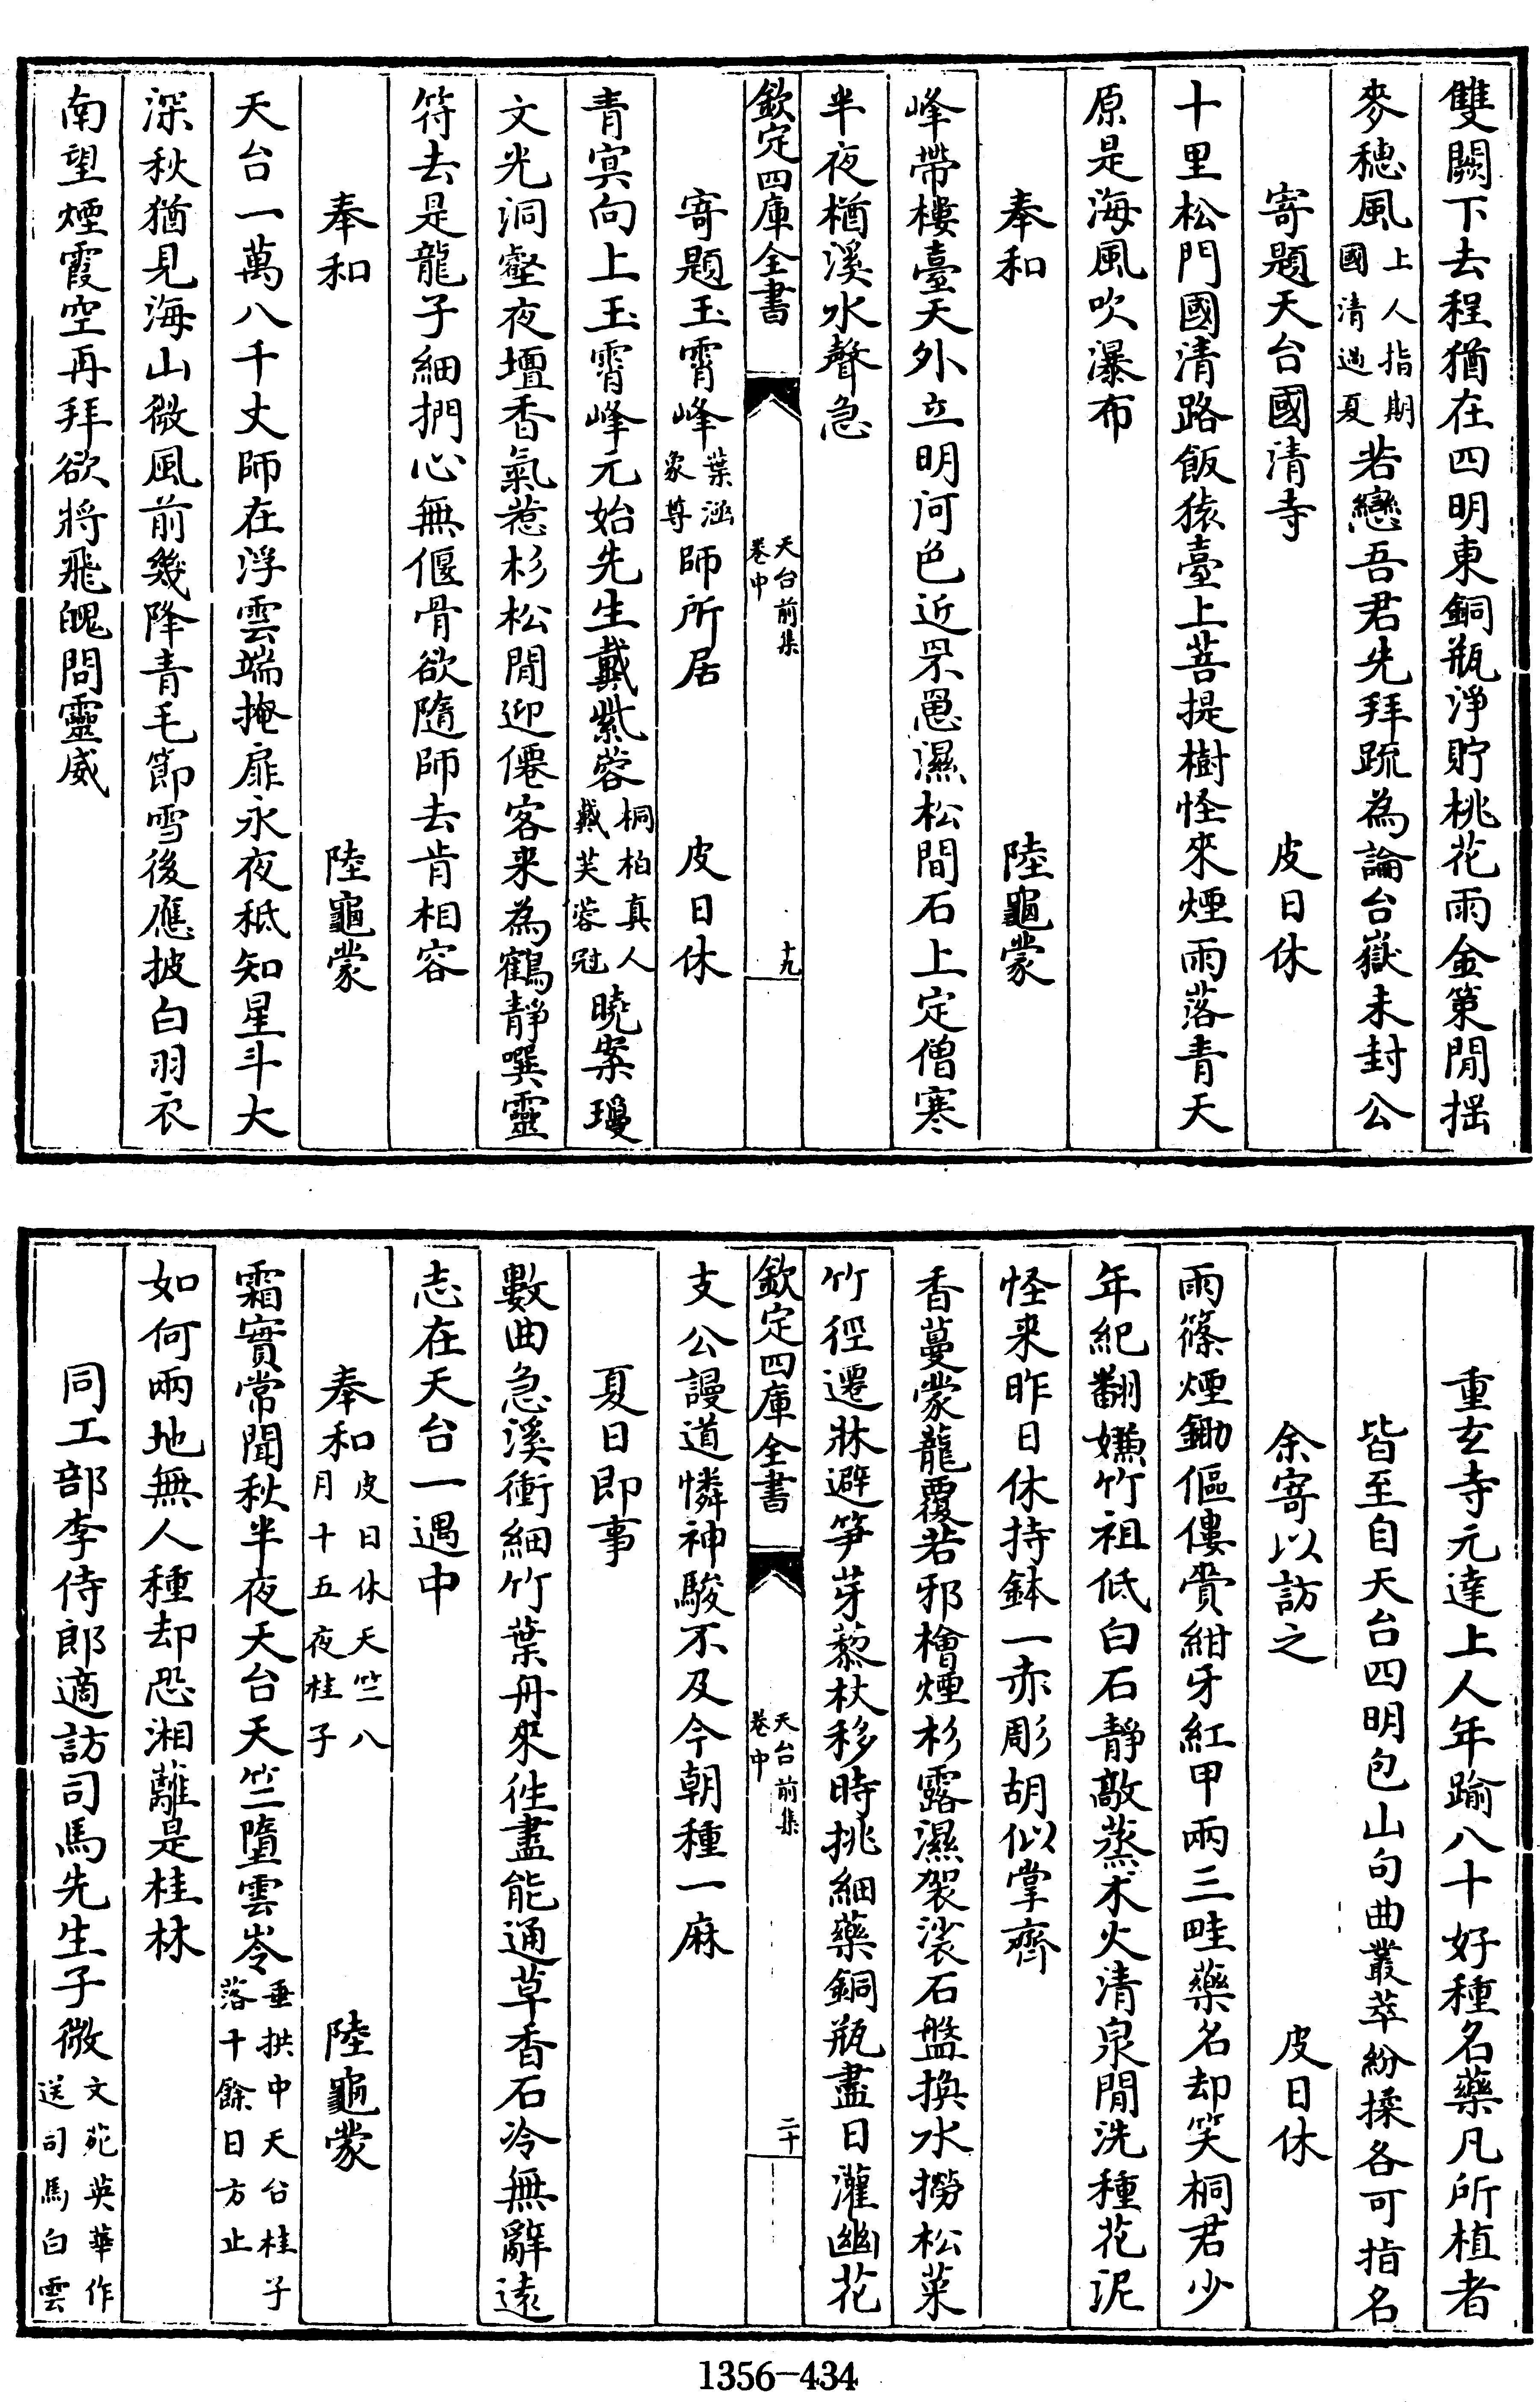 雙闕下去程猶在四明東銅瓶淨貯桃花雨金策閒揺
麥穗風上人指期國清過夏若戀吾君先拜疏為論台嶽未封公
寄題天台國清寺 皮日休
十里松門國清路飯猿臺上菩提樹怪來煙雨落青天
原是海風吹瀑布
奉和 陸龜蒙
峰帶樓臺天外立明河色近罘罳濕松間石上定僧寒
半夜楢溪水聲急
欽定四庫全書 天台前集卷中 十九
寄題玉霄峰葉涵象尊師所居 皮日休
青冥向上玉霄峰元始先生戴紫蓉桐柏真人戴芙蓉冠曉案瓊
文光洞壑夜壇香氣惹杉松閒迎僊客来為鶴靜噀靈
符去是龍子細捫心無偃骨欲隨師去肯相容
奉和 陸龜蒙
天台一萬八千丈師在浮雲端掩扉永夜秪知星斗大
深秋猶見海山微風前幾降青毛節雪後應披白羽衣
南望煙霞空再拜欲將飛魄問靈威
重玄寺元達上人年踰八十好種名藥凡所植者
皆至自天台四明包山句曲叢萃紛揉各可指名
余寄以訪之 皮日休
雨篠煙鋤傴僂賫紺牙紅甲兩三畦藥名却笑桐君少
年紀翻嫌竹祖低白石靜敲蒸朮火清泉閒洗種花泥
怪来昨日休持鉢一赤彫胡似掌齊
香蔓蒙龍覆若邪檜煙杉露濕袈裟石盤換水撈松葉
竹徑遷牀避笋芽藜杖移時挑細藥銅瓶盡日灌幽花
欽定四庫全書 天台前集卷中 二十
支公謾道憐神駿不及今朝種一麻
夏日即事
數曲急溪衝細竹葉舟來徃盡能通草香石冷無辭遠
志在天台一遇中
奉和皮日休天竺八月十五夜桂子 陸龜蒙
霜實常聞秋半夜天台天竺墮雲岑垂拱中天台桂子落十餘日方止
如何兩地無人種却恐湘蘺是桂林
同工部李侍郎適訪司馬先生子微文苑英華作送司馬白雲
1356-434